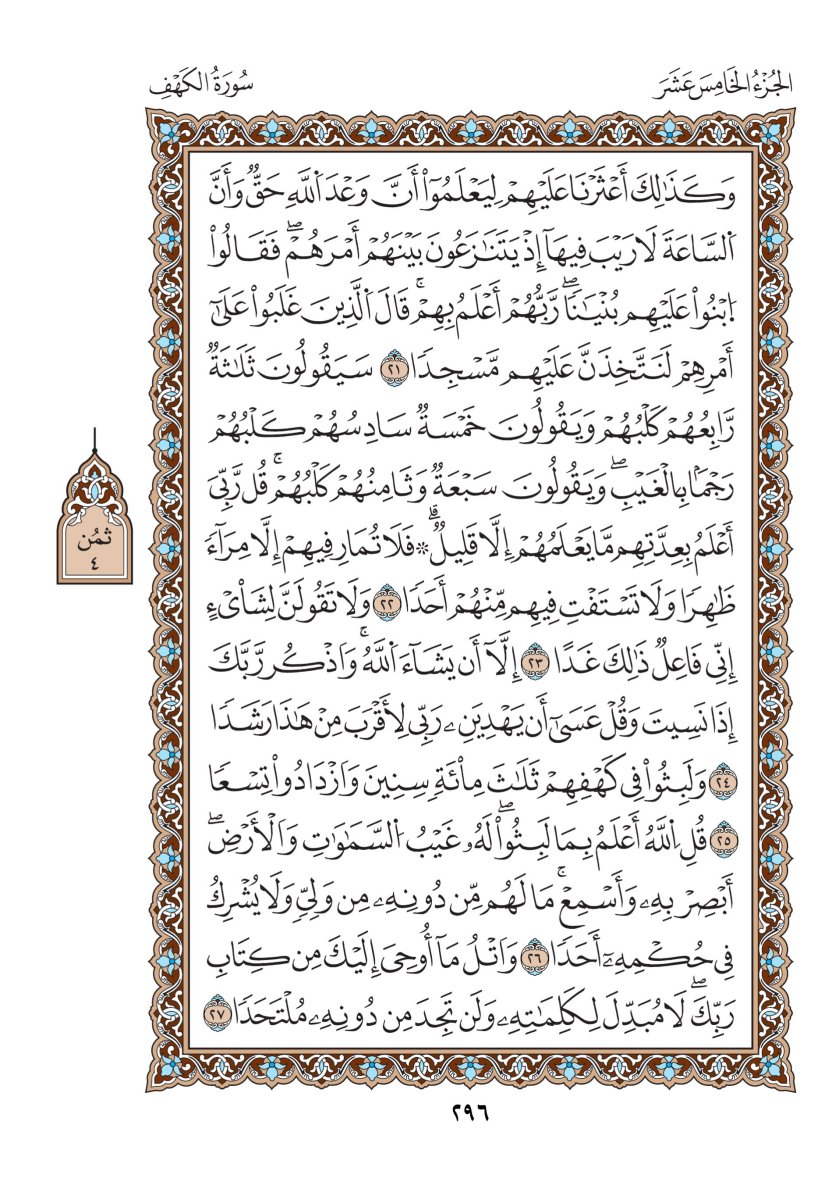 الجُزْءُ الخَامِسَ عَشَرَ
سُورَةُ الكَهْفِ
وَكَذَٰلِكَ أَعْثَرْنَا عَلَيْهِمْ لِيَعْلَمُوٓا۟ أَنَّ وَعْدَ اَ۬للَّهِ حَقࣱّ وَأَنَّ
اَ۬لسَّاعَةَ لَا رَيْبَ فِيهَآ إِذْ يَتَنَٰزَعُونَ بَيْنَهُمْ أَمْرَهُمْۖ فَقَالُوا۟
اُ۪بْنُوا۟ عَلَيْهِم بُنْيَٰنࣰاۖ رَّبُّهُمْ أَعْلَمُ بِهِمْۚ قَالَ اَ۬لَّذِينَ غَلَبُوا۟ عَلَىٰٓ
أَمْرِهِمْ لَنَتَّخِذَنَّ عَلَيْهِم مَّسْجِدࣰا ٢١ سَيَقُولُونَ ثَلَٰثَةࣱ
رَّابِعُهُمْ كَلْبُهُمْ وَيَقُولُونَ خَمْسَةࣱ سَادِسُهُمْ كَلْبُهُمْ
رَجْمَۢا بِالْغَيْبِۖ وَيَقُولُونَ سَبْعَةࣱ وَثَامِنُهُمْ كَلْبُهُمْۚ قُل رَّبِّيَ
أَعْلَمُ بِعِدَّتِهِم مَّا يَعْلَمُهُمْ إِلَّا قَلِيلࣱۗ ۞ فَلَا تُمَارِ فِيهِمْ إِلَّا مِرَآءࣰ
ظَٰهِرࣰا وَلَا تَسْتَفْتِ فِيهِم مِّنْهُمْ أَحَدࣰا ٢٢ وَلَا تَقُولَنَّ لِشَا۟يْءٍ
إِنِّي فَاعِلࣱ ذَٰلِكَ غَدًا ٢٣ إِلَّآ أَن يَشَآءَ اَ۬للَّهُۚ وَاذْكُر رَّبَّكَ
إِذَا نَسِيتَ وَقُلْ عَسَىٰٓ أَن يَهْدِيَنِۦ رَبِّي لِأَقْرَبَ مِنْ هَٰذَا رَشَدࣰا
٢٤ وَلَبِثُوا۟ فِي كَهْفِهِمْ ثَلَٰثَ مِا۟ئَةࣲ سِنِينَ وَازْدَادُوا۟ تِسْعࣰا
٢٥ قُلِ اِ۬للَّهُ أَعْلَمُ بِمَا لَبِثُوا۟ۖ لَهُۥ غَيْبُ اُ۬لسَّمَٰوَٰتِ وَالْأَرْضِۖ
أَبْصِرْ بِهِۦ وَأَسْمِعْۚ مَا لَهُم مِّن دُونِهِۦ مِن وَلِيࣲّ وَلَا يُشْرِكُ
فِي حُكْمِهِۦٓ أَحَدࣰا ٢٦ وَاتْلُ مَآ أُوحِيَ إِلَيْكَ مِن كِتَابِ
رَبِّكَۖ لَا مُبَدِّلَ لِكَلِمَٰتِهِۦ وَلَن تَجِدَ مِن دُونِهِۦ مُلْتَحَدࣰا ٢٧
ثمُن
٤
٢٩٦